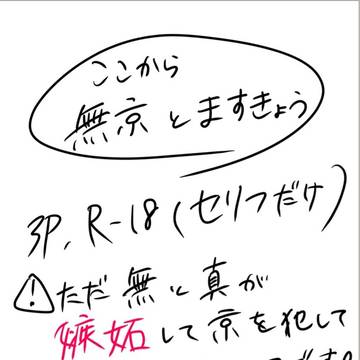 ここから
無京とますきょう
3P, R-18(セリフだけ)
⚠ただ無と真が
嫉妬して京を犯して